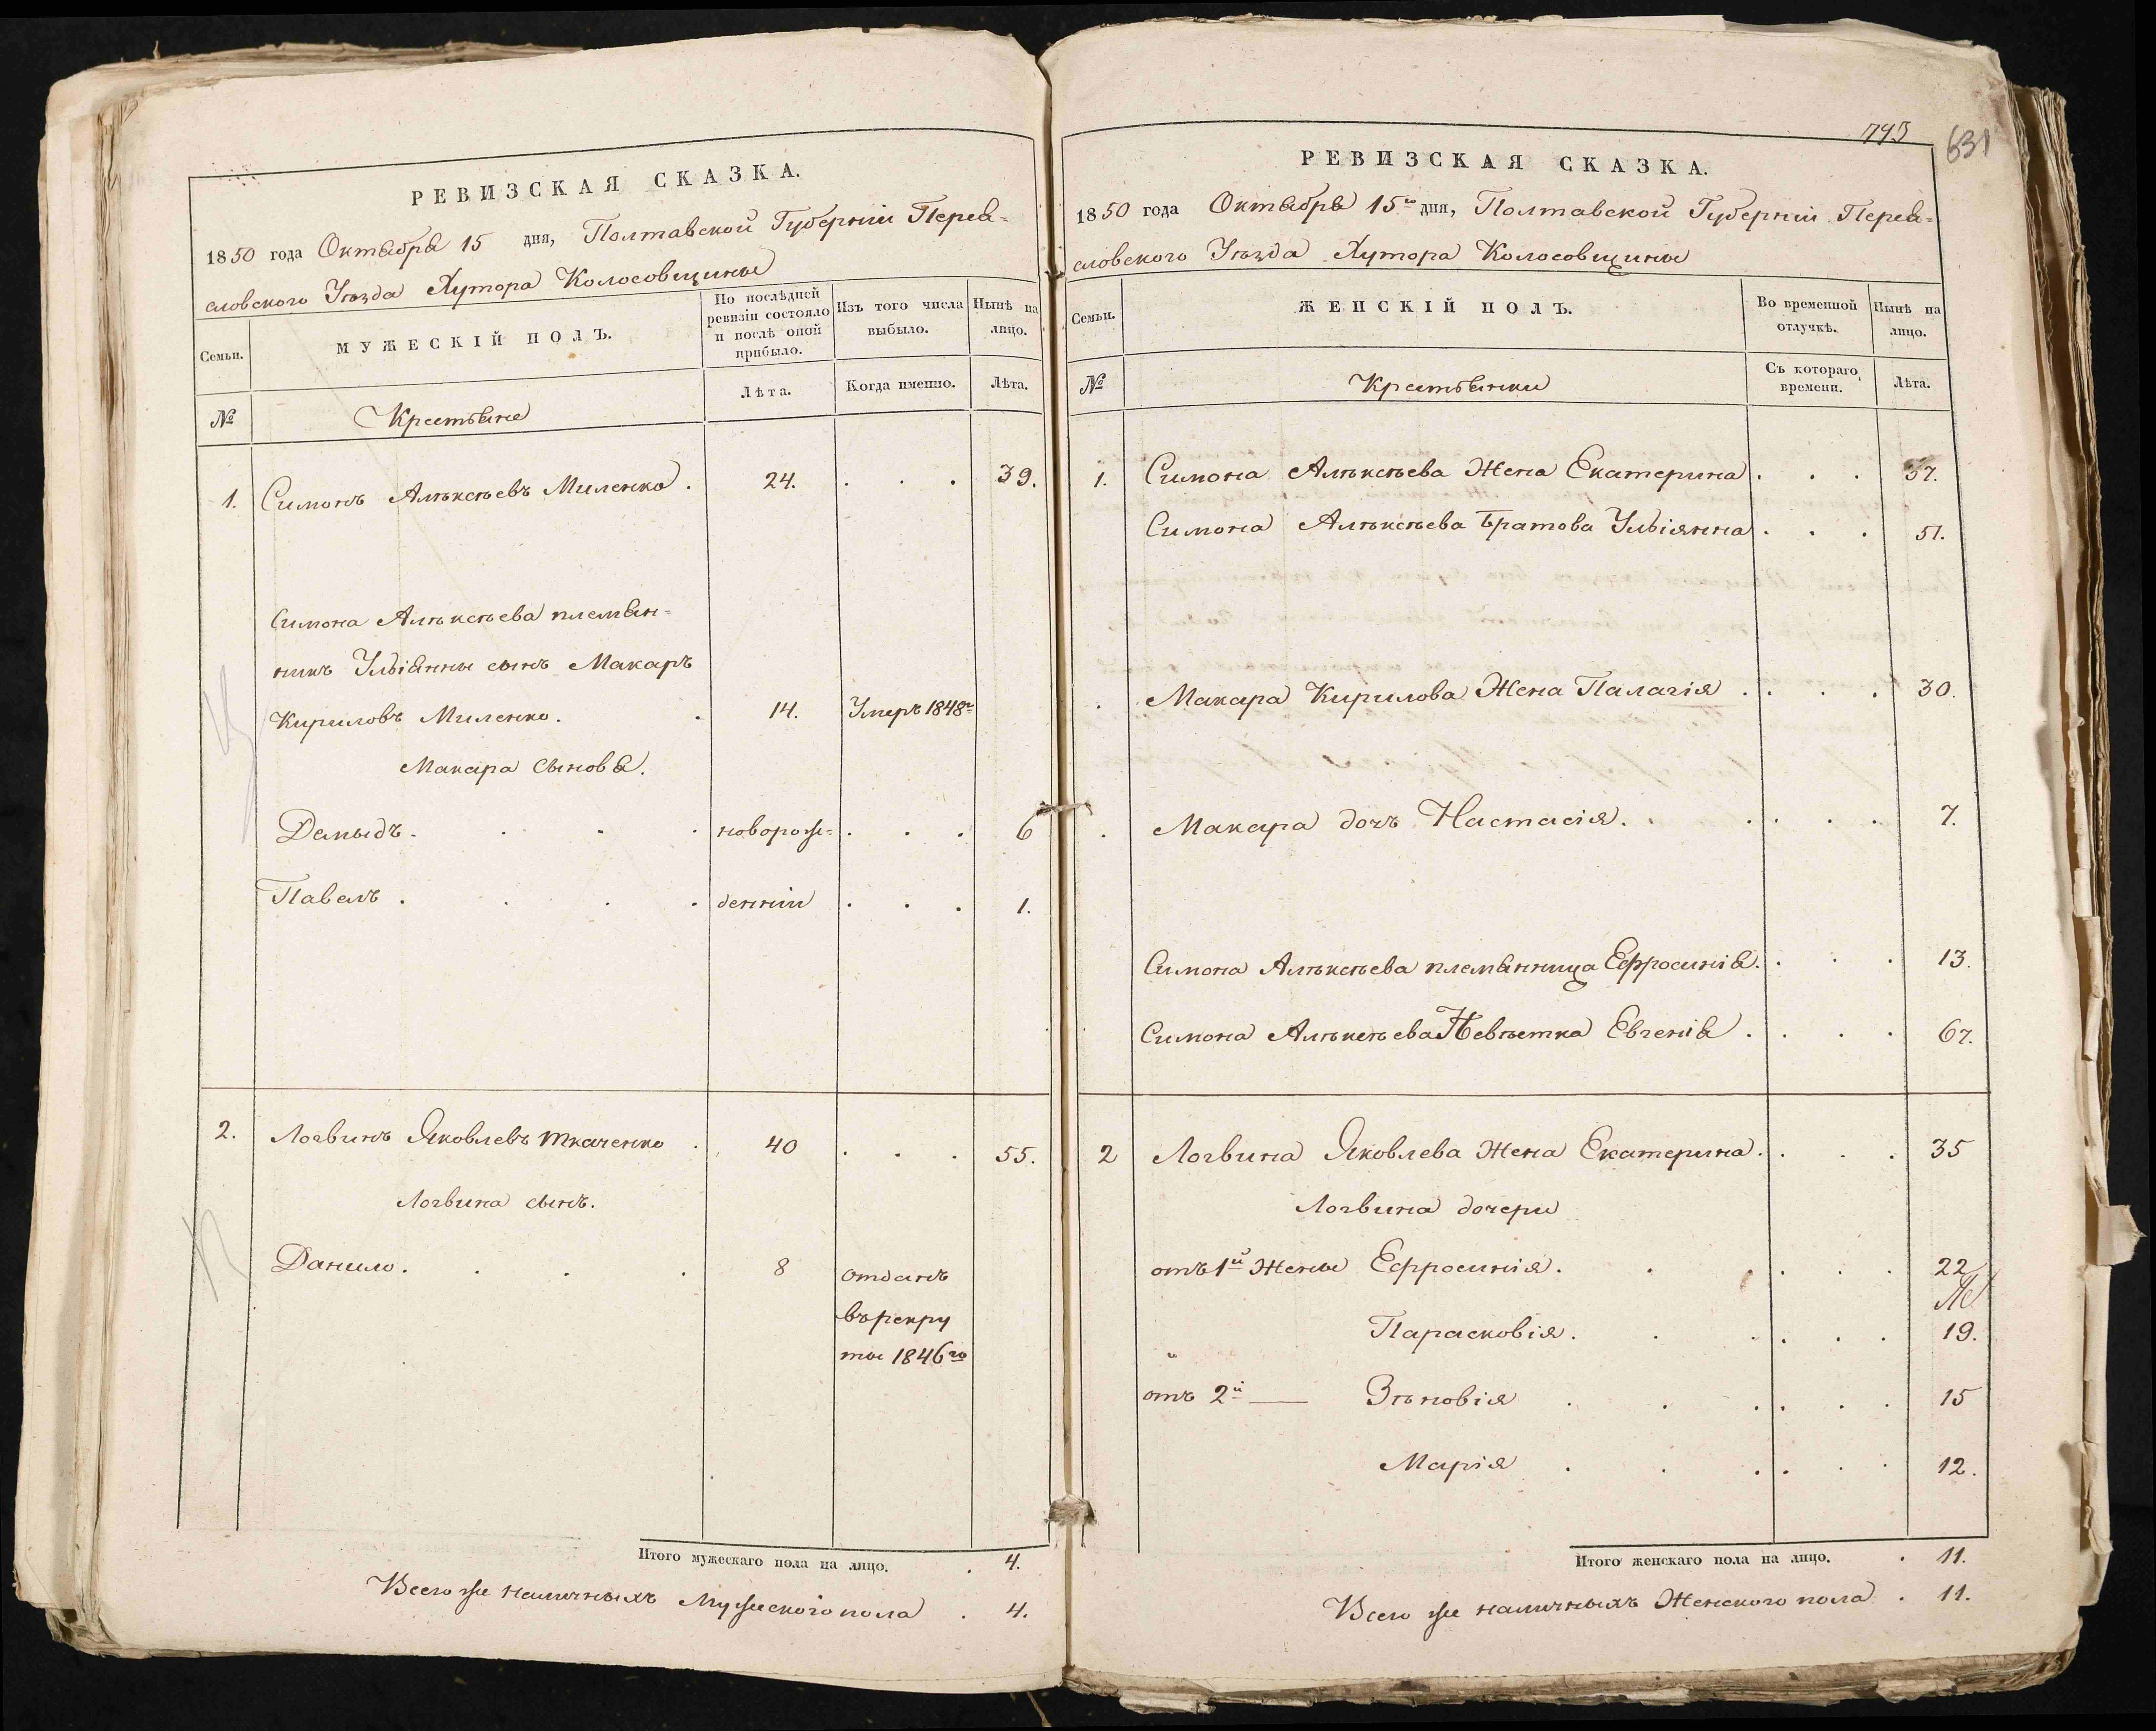 РЕВИЗСКАЯ СКАЗКА.
1850 года Октября 15 дня, Полтавской Губерніи Перея=
словского Уѣзда Хутора Колосовщины
Семьи.
МУЖЕСКІЙ ПОЛЪ.
По послѣдней ревизіи состояло и послѣ оной прибыло.
Изъ того числа выбыло.
Нынѣ на лицо.
№
Крестьяне
Лѣта.
Когда именно.
Лѣта.
1. Симонъ Алѣксѣевъ Миленко. 24. . . . 39.
Симона Алѣксѣева племян=
никъ Ульіянны сынъ Макаръ
Кириловъ Миленко. . 14. Умеръ 1848г
Макара сыновя.
Демыдъ. . . . новорож= . . . 6
Павелъ . . . . денніи . . . 1.
2. Логвинъ Яковлевъ Ткаченко . 40 . . . 55.
Логвина сынъ.
Данило. . . . 8 отданъ
въ рекру
ты 1846го
Итого мужескаго пола на лицо. . 4.
Всего же наличныхъ Мужеского пола . 4.
793
631
РЕВИЗСКАЯ СКАЗКА.
1850 года Октября 15го дня, Полтавской Губерніи Перея=
словского Уѣзда Хутора Колосовщины
Семьи.
ЖЕНСКІЙ ПОЛЪ.
Во временной отлучкѣ.
Нынѣ на лицо.
№
Крестьянки
Съ котораго времени.
Лѣта.
1. Симона Алѣксѣева Жена Екатерина . . . 37.
Симона Алѣксѣева Братова Ульіянна . . . 51.
. Макара Кирилова Жена Палагія . . . . 30.
. Макара дочь Настасія. . . . . . 7.
Симона Алѣксѣева племянница Ефросинія. . . . 13.
Симона Алѣксѣева Невѣстка Евгенія . . . . 67.
2 Логвина Яковлева Жена Екатерина. . . . 35
Логвина дочери
отъ 1й Жены Ефросинія. . . . . 22
" Парасковія. . . . . . 19.
отъ 2й — Зѣновія . . . . . . 15
Марія . . . . . . 12.
Итого женскаго пола на лицо. . 11.
Всего же наличныхъ Женского пола . 11.